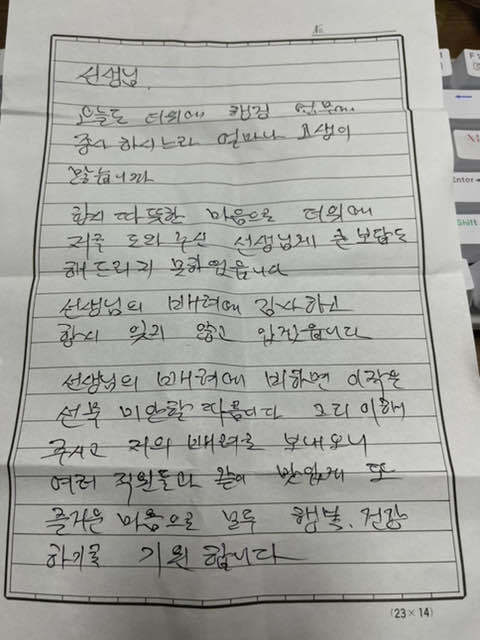 No.
선생님.
오늘도 더위에 현장 업무에
종사 하시는라 얼마나 고생이
많습니까
항시 따뜻한 마음으로 더위에
저를 도와 주신 선생님께 큰 보답도
해드리지 못하였읍니다
선생님의 배려에 감사하고
항시 잊지 않고 있겠읍니다
선생님의 배려에 비하면 이작은
선물 미안할 따름니다 그리 이해
주시고 저의 배려를 보내오니
여러 직원들과 같이 맛있게 또
즐거운 마음으로 모두 행복, 건강
하기를 기원 합니다
(23×14)
Enter
Shift